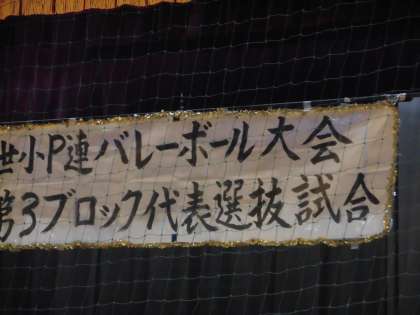 世小P連バレーボール大会
第3ブロック代表選抜試合